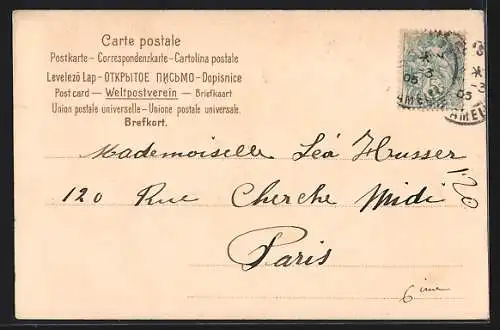 Carte postale
Postkarte - Correspondenzkarte - Cartolina postale
Levelező Lap - ОТКРЫТОЕ ПИСЬМО - Dopisnice
Post card — Weltpostverein — Briefkaart
Union postale universelle - Unione postale universale.
Brefkort.
Mademoiselle Léa Husser
120 Rue Cherche Midi
120
Paris
6 ime